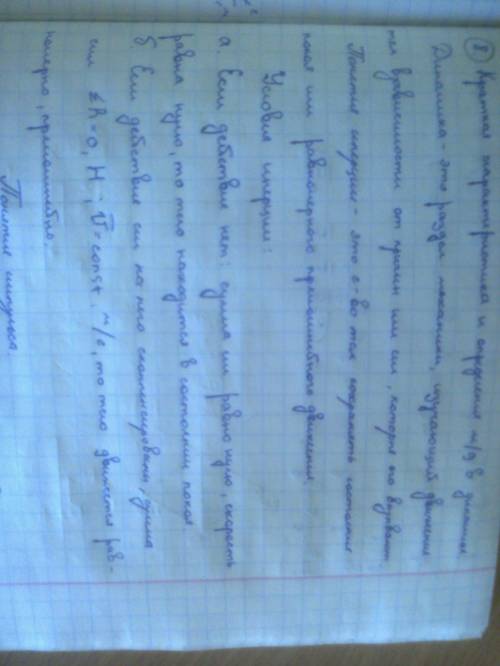 ① Краткая характеристика и определения м/д в динамике
Динамика - это раздел механики, изучающий движение
тел в зависимости от причин или сил, которые его вызвали
Понятие инерции - это с-во тел сохранять состояние
покоя или равномерного прямолинейного движения.
Условия инерции:
а. Если действия нет: сумма сил равна нулю, скорость
равна нулю, то тело находится в состоянии покоя.
б. Если действия сил на него скомпенсированы, сумма
сил ΣF=0, Н; v̄=const, м/с, то тело движется рав-
номерно, прямолинейно.
Понятие импульса.